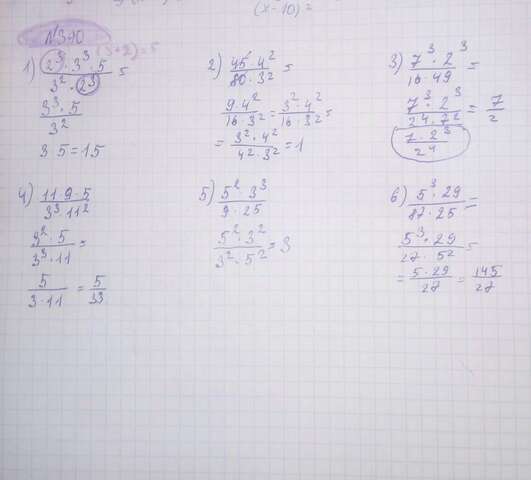 (x-10)=
N390
1) (2³·3³·5)/(3²·2³) = (3+2)=5
(3³·5)/3²
3·5=15
2) (45·4²)/(80·3²) =
(9·4²)/(16·3²) = (3²·4²)/(16·3²) =
= (3²·4²)/(4²·3²) = 1
3) (7³·2³)/(16·49) =
(7³·2³)/(2⁴·7²) = 7/2
(7·2³)/2⁴
4) (11·9·5)/(3³·11²)
(3²·5)/(3³·11) =
5/(3·11) = 5/33
5) (5²·3³)/(9·25)
(5²·3²)/(3²·5²) = 3
6) (5³·29)/(87·25) =
(5³·29)/(27·5²) =
= (5·29)/27 = 145/27